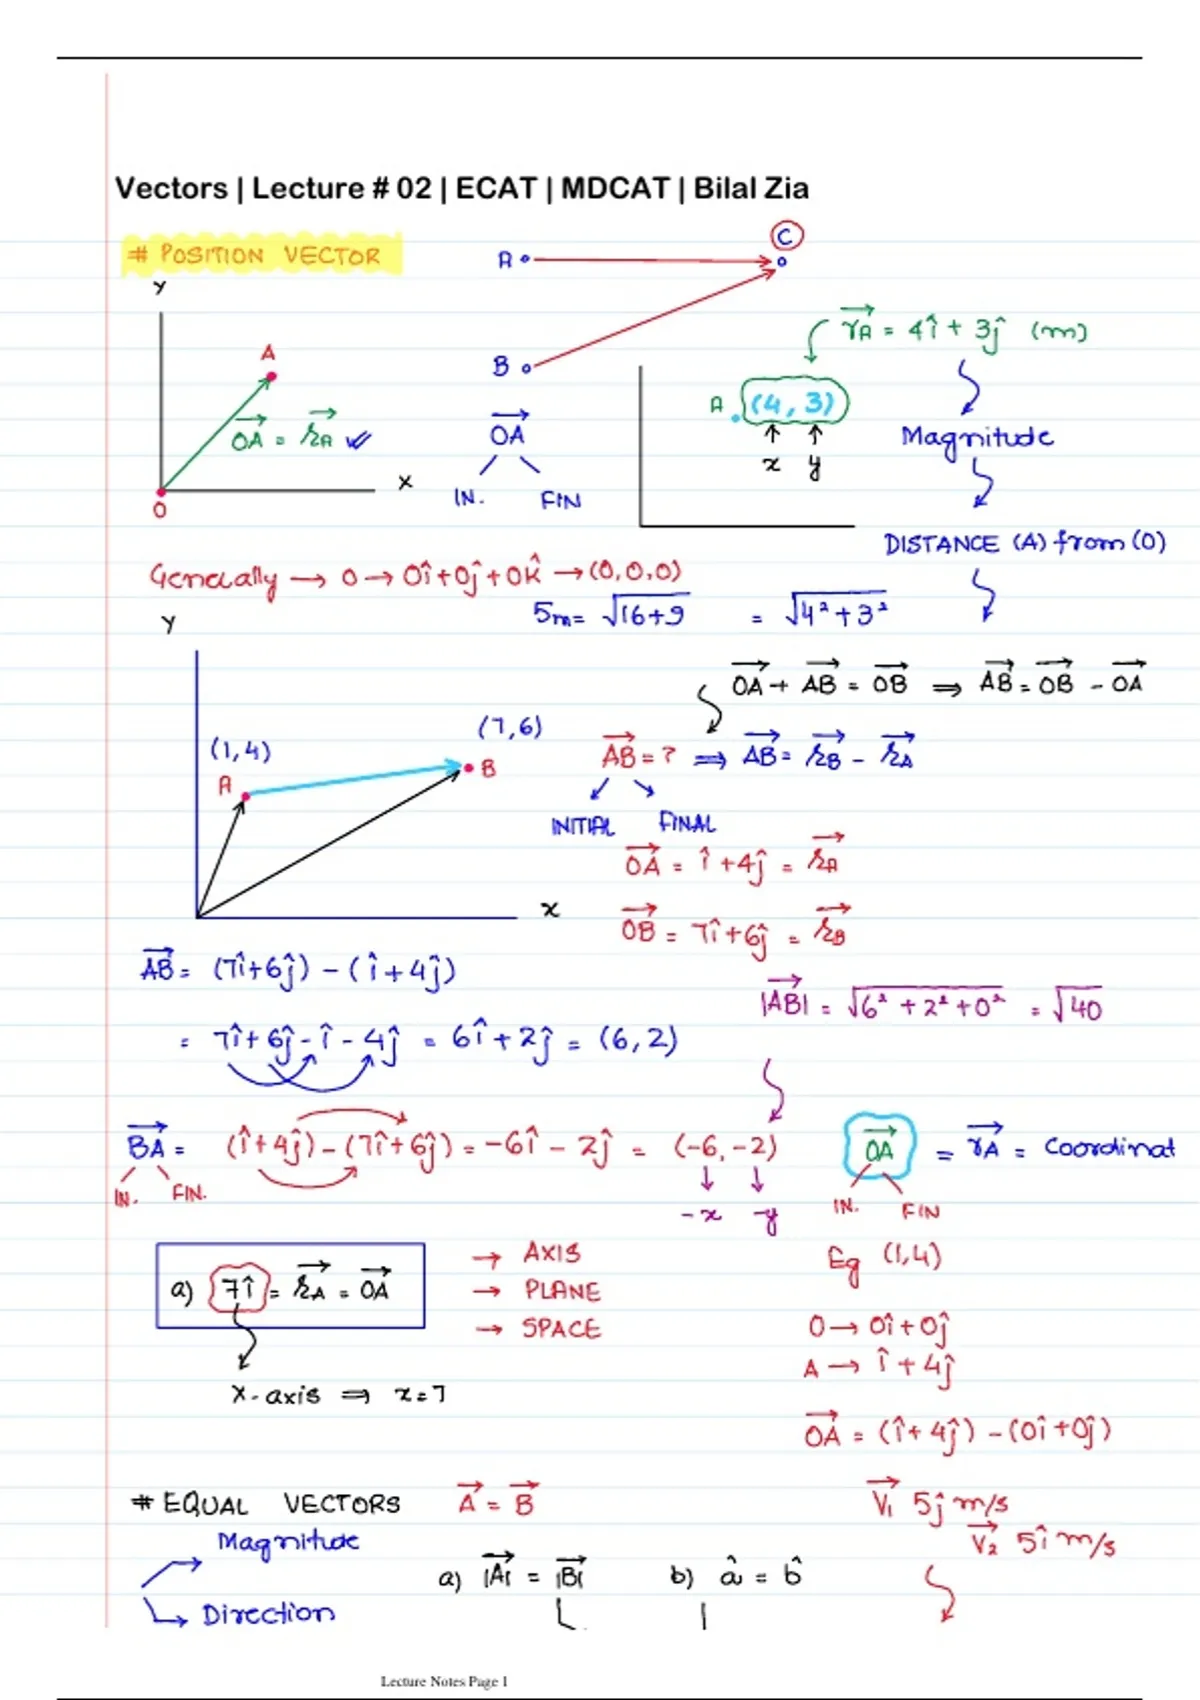 Vectors | Lecture # 02 | ECAT | MDCAT | Bilal Zia
# POSITION VECTOR
A
C
Y
A
OA = rA
X
O
B
OA
IN. FIN
rA = 4î + 3ĵ (m)
A (4, 3)
↑ ↑
x y
Magnitude
DISTANCE (A) from (O)
Generally → O → 0î + 0ĵ + 0k̂ → (0,0,0)
5m = √16+9 = √4² + 3²
Y
(1,4)
A
(7,6)
B
x
OA + AB = OB ⇒ AB = OB - OA
AB = ? ⇒ AB = rB - rA
INITIAL FINAL
OA = î + 4ĵ = rA
OB = 7î + 6ĵ = rB
AB = (7î+6ĵ) - (î + 4ĵ)
|AB| = √6² + 2² + 0² = √40
= 7î + 6ĵ - î - 4ĵ = 6î + 2ĵ = (6, 2)
BA = (î + 4ĵ) - (7î + 6ĵ) = -6î - 2ĵ = (-6, -2)
IN. FIN.
-x -y
OA = rA = Coordinat
IN. FIN
Eg (1,4)
a) 7î = rA = OA
→ AXIS
→ PLANE
→ SPACE
x-axis ⇒ x=7
O → 0î + 0ĵ
A → î + 4ĵ
OA = (î + 4ĵ) - (0î + 0ĵ)
# EQUAL VECTORS A = B
Magnitude
Direction
a) |A| = |B| b) â = b̂
V1 5ĵ m/s
V2 5î m/s
Lecture Notes Page 1